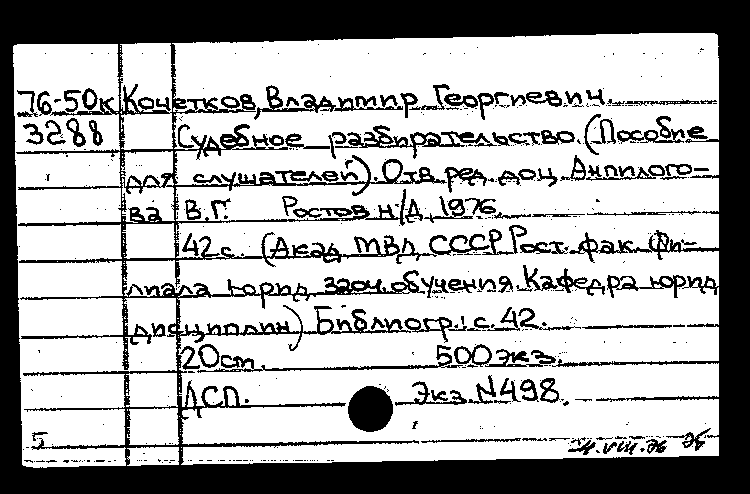 76-50к Кочетков, Владимир Георгиевич.
3288 Судебное разбирательство. (Пособие
для слушателей). Отв. ред. доц. Анпилого-
ва В.Г. Ростов н/Д, 1976.
42 с. (Акад. МВД СССР Рост. фак. Фи-
лиала юрид. заоч. обучения. Кафедра юрид.
дисциплин) Библиогр.: с. 42.
20 см. 500 экз.
ДСП. Экз. N 498.
5 .VIII.76